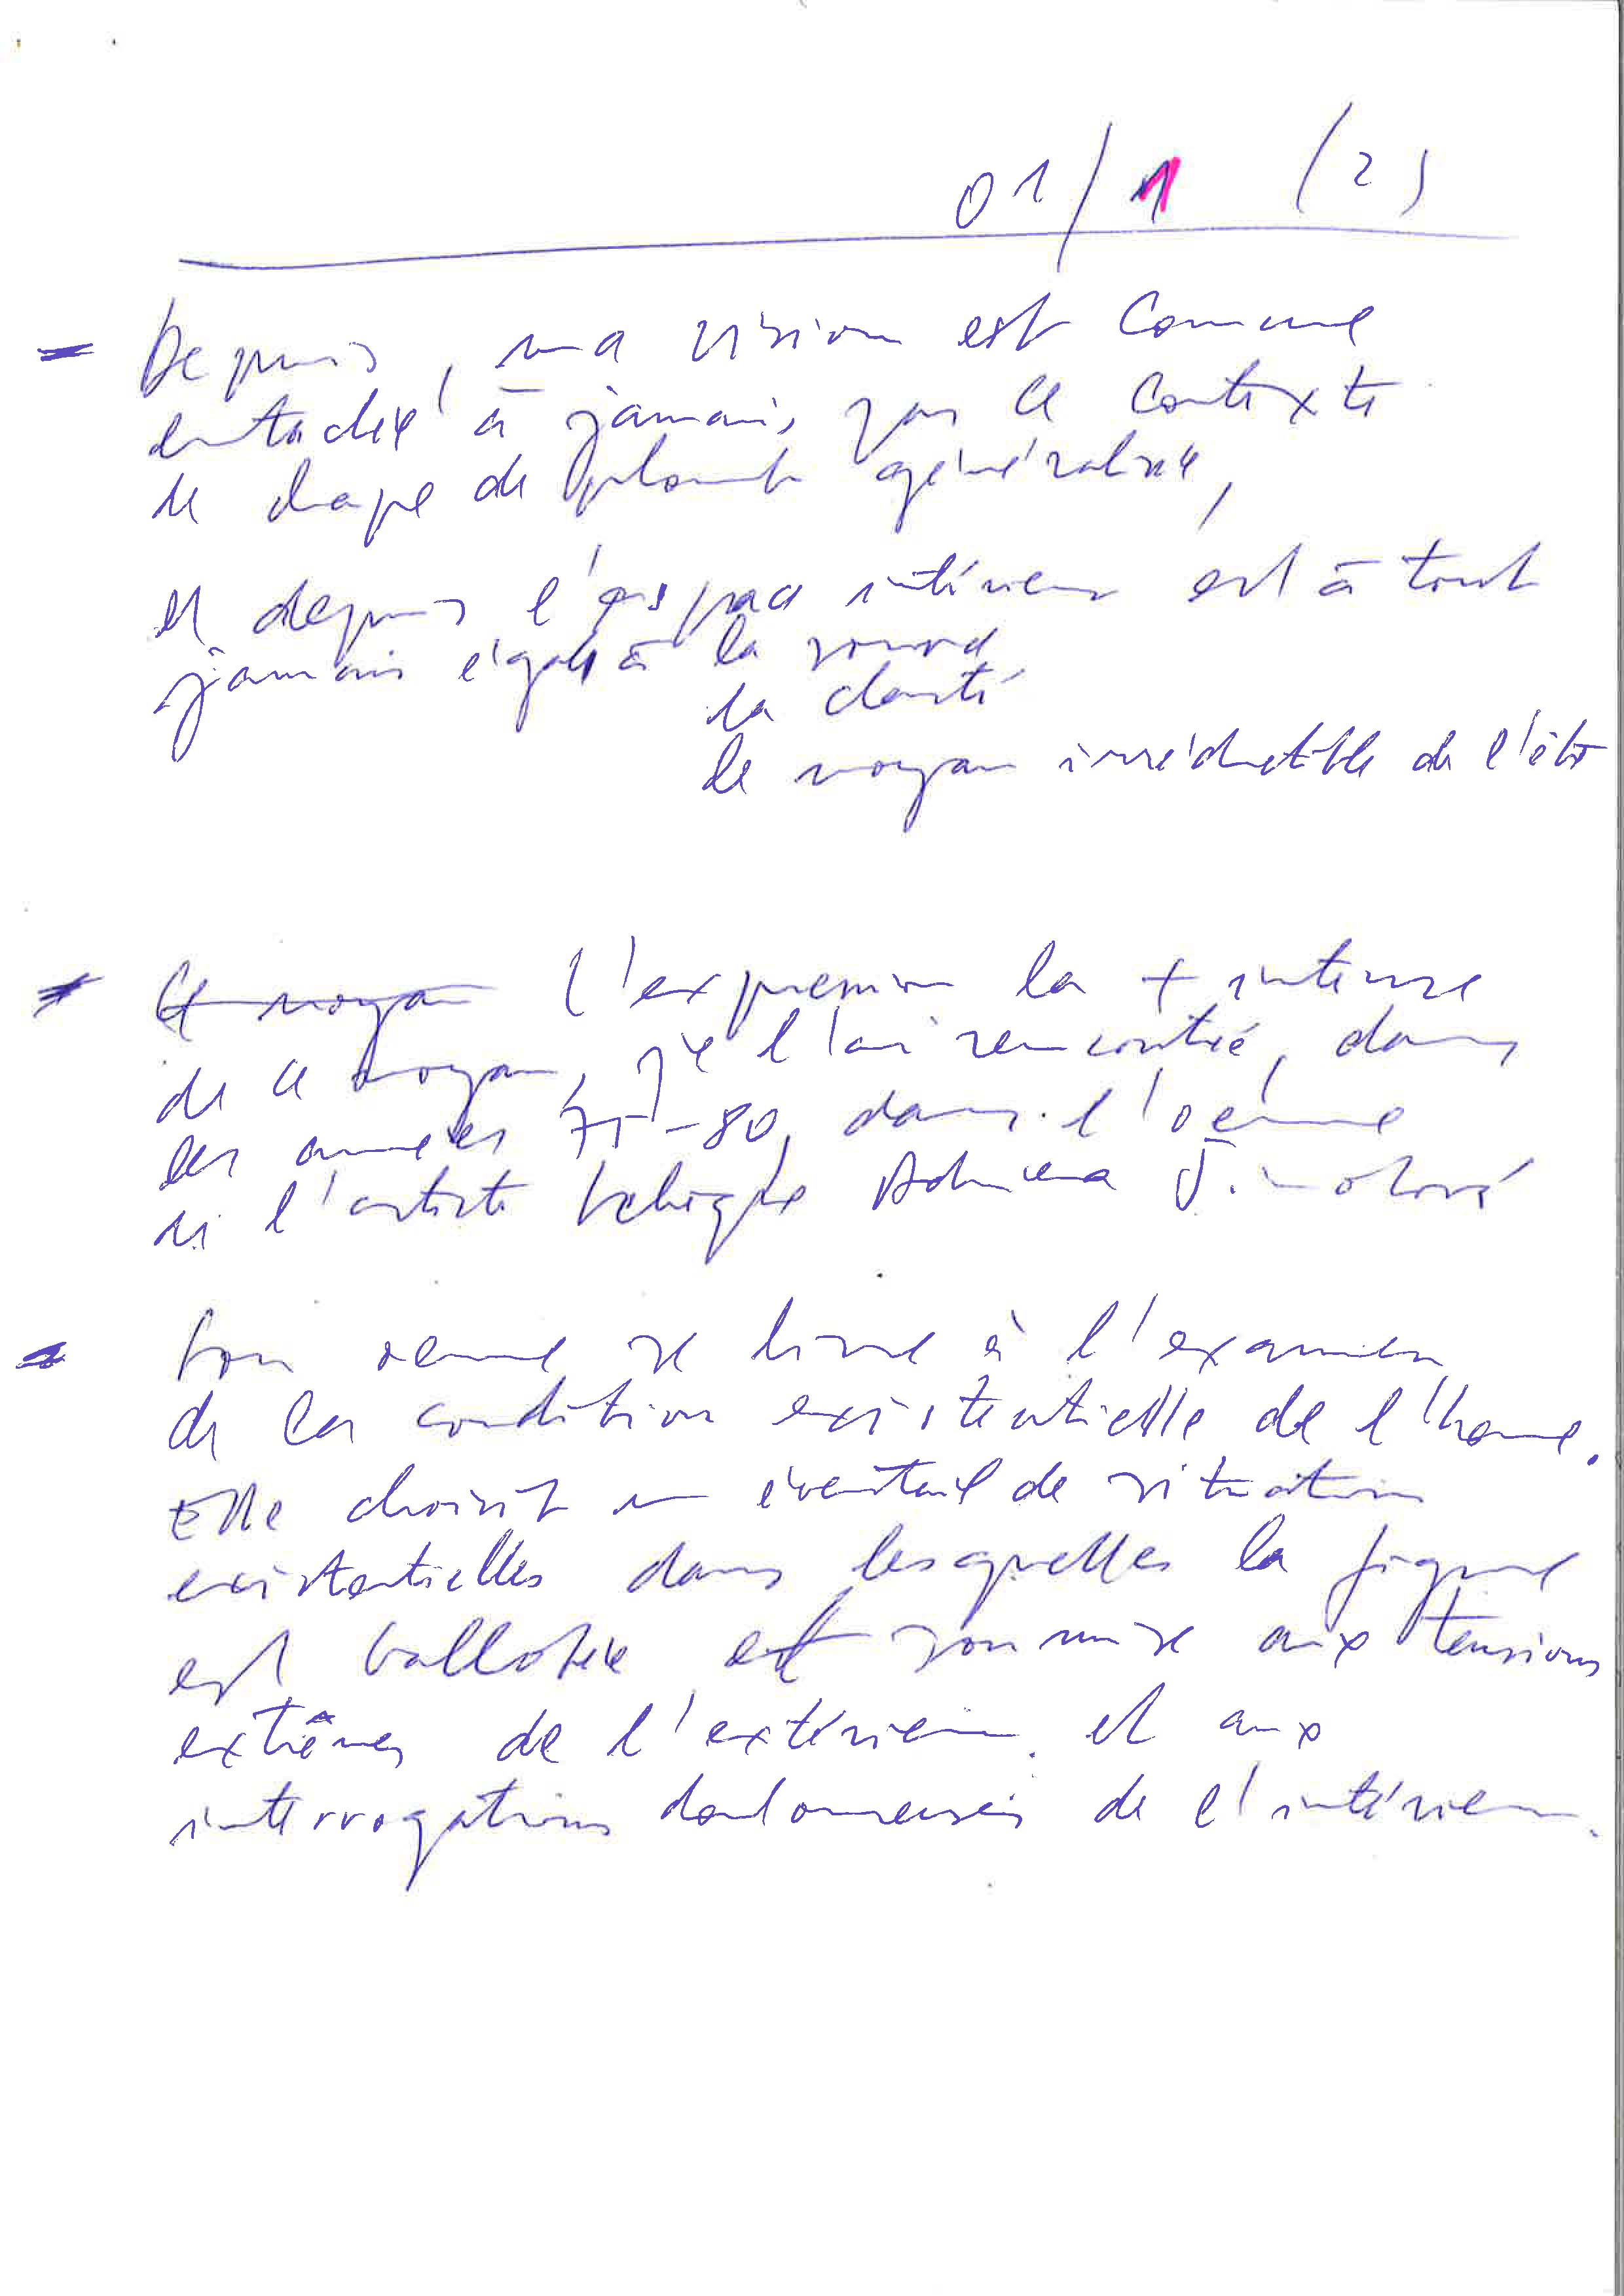 01/1 (2)
= Depuis, ma vision est comme
entachée à jamais, par ce contexte
de chape de plomb généralisée,
et depuis l'espace intérieur est à tout
jamais égal à la
la clarté
le noyau irréductible de l'être
Ce noyau l'expression la + intense
de ce noyau, je l'ai rencontrée, dans
les années 75-80, dans l'œuvre
de l'artiste tchèque Adriena Šimotová
Son œuvre se livre à l'examen
de la condition existentielle de l'homme.
Elle choisit un éventail de situations
existentielles dans lesquelles la figure
est ballotée et soumise aux tensions
extrêmes de l'extérieur et aux
interrogations douloureuses de l'intérieur.